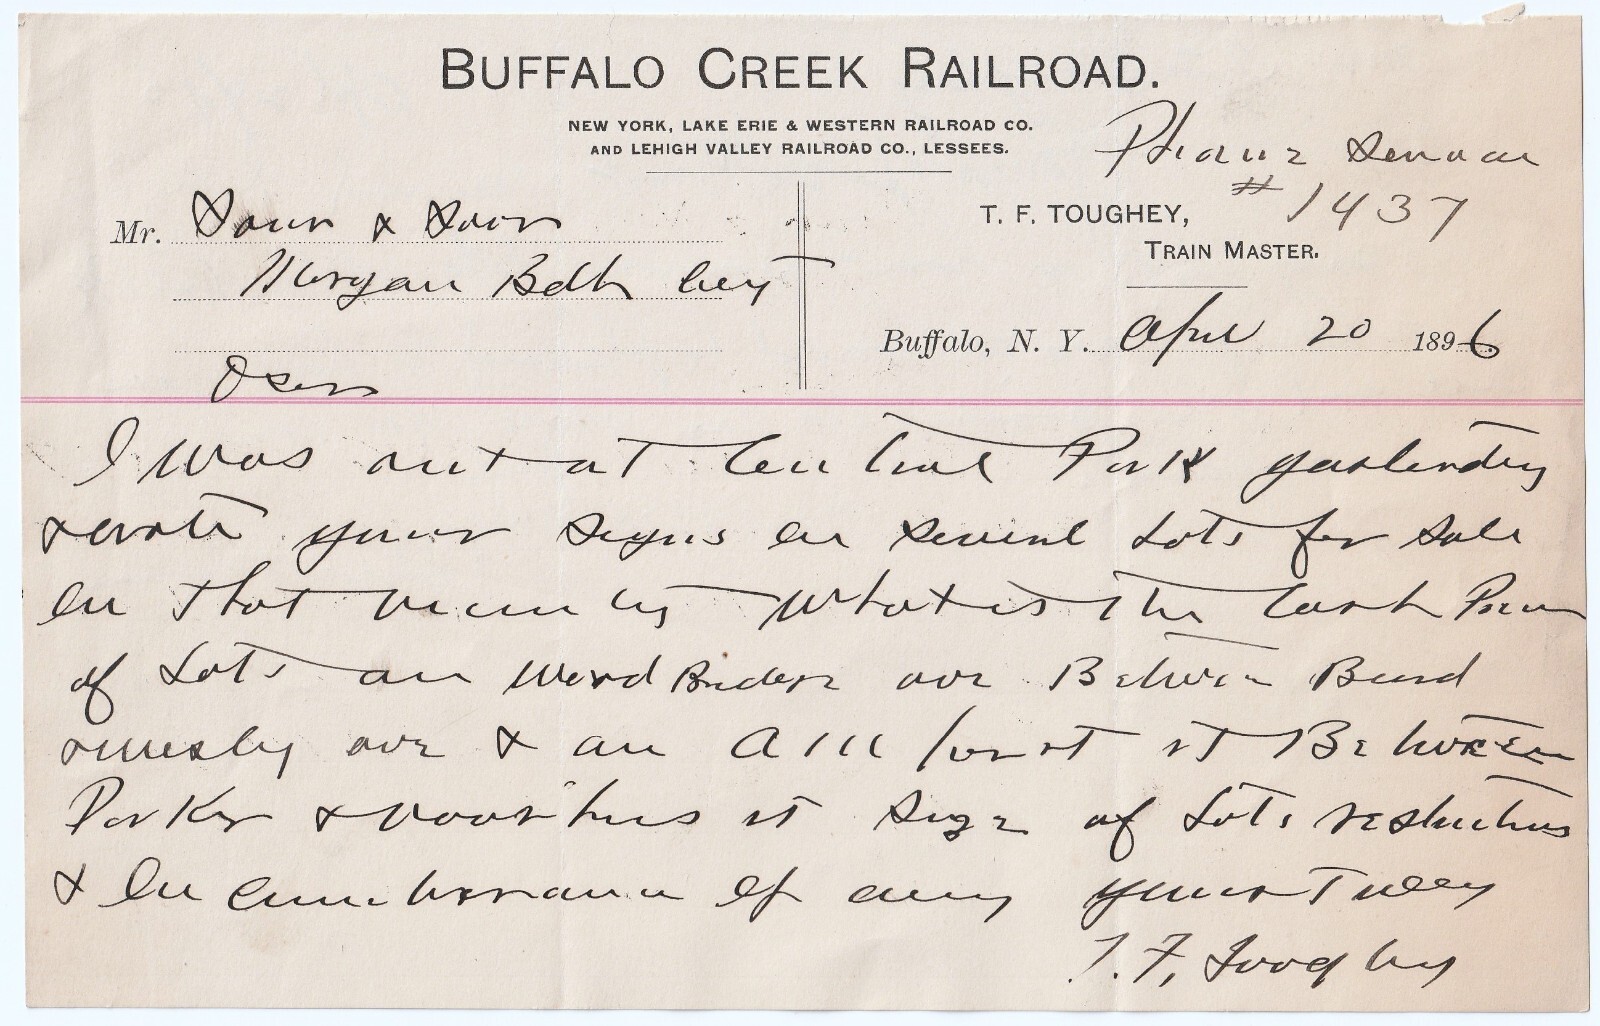 BUFFALO CREEK RAILROAD.
NEW YORK, LAKE ERIE & WESTERN RAILROAD CO.
AND LEHIGH VALLEY RAILROAD CO., LESSEES.
Phone Seneca
# 1437
T. F. TOUGHEY,
TRAIN MASTER.
Mr.
Morgan city
Buffalo, N. Y. April 20 1896
I was out at Central Park yesterday
your signs on several Lots for sale
in that vicinity What is the Cash
of Lots on Woodbridge ave Between
ave & on st Between
Parker & st size of Lots restrictions
& Encumberance if any yours Truly
T. F. Toughey